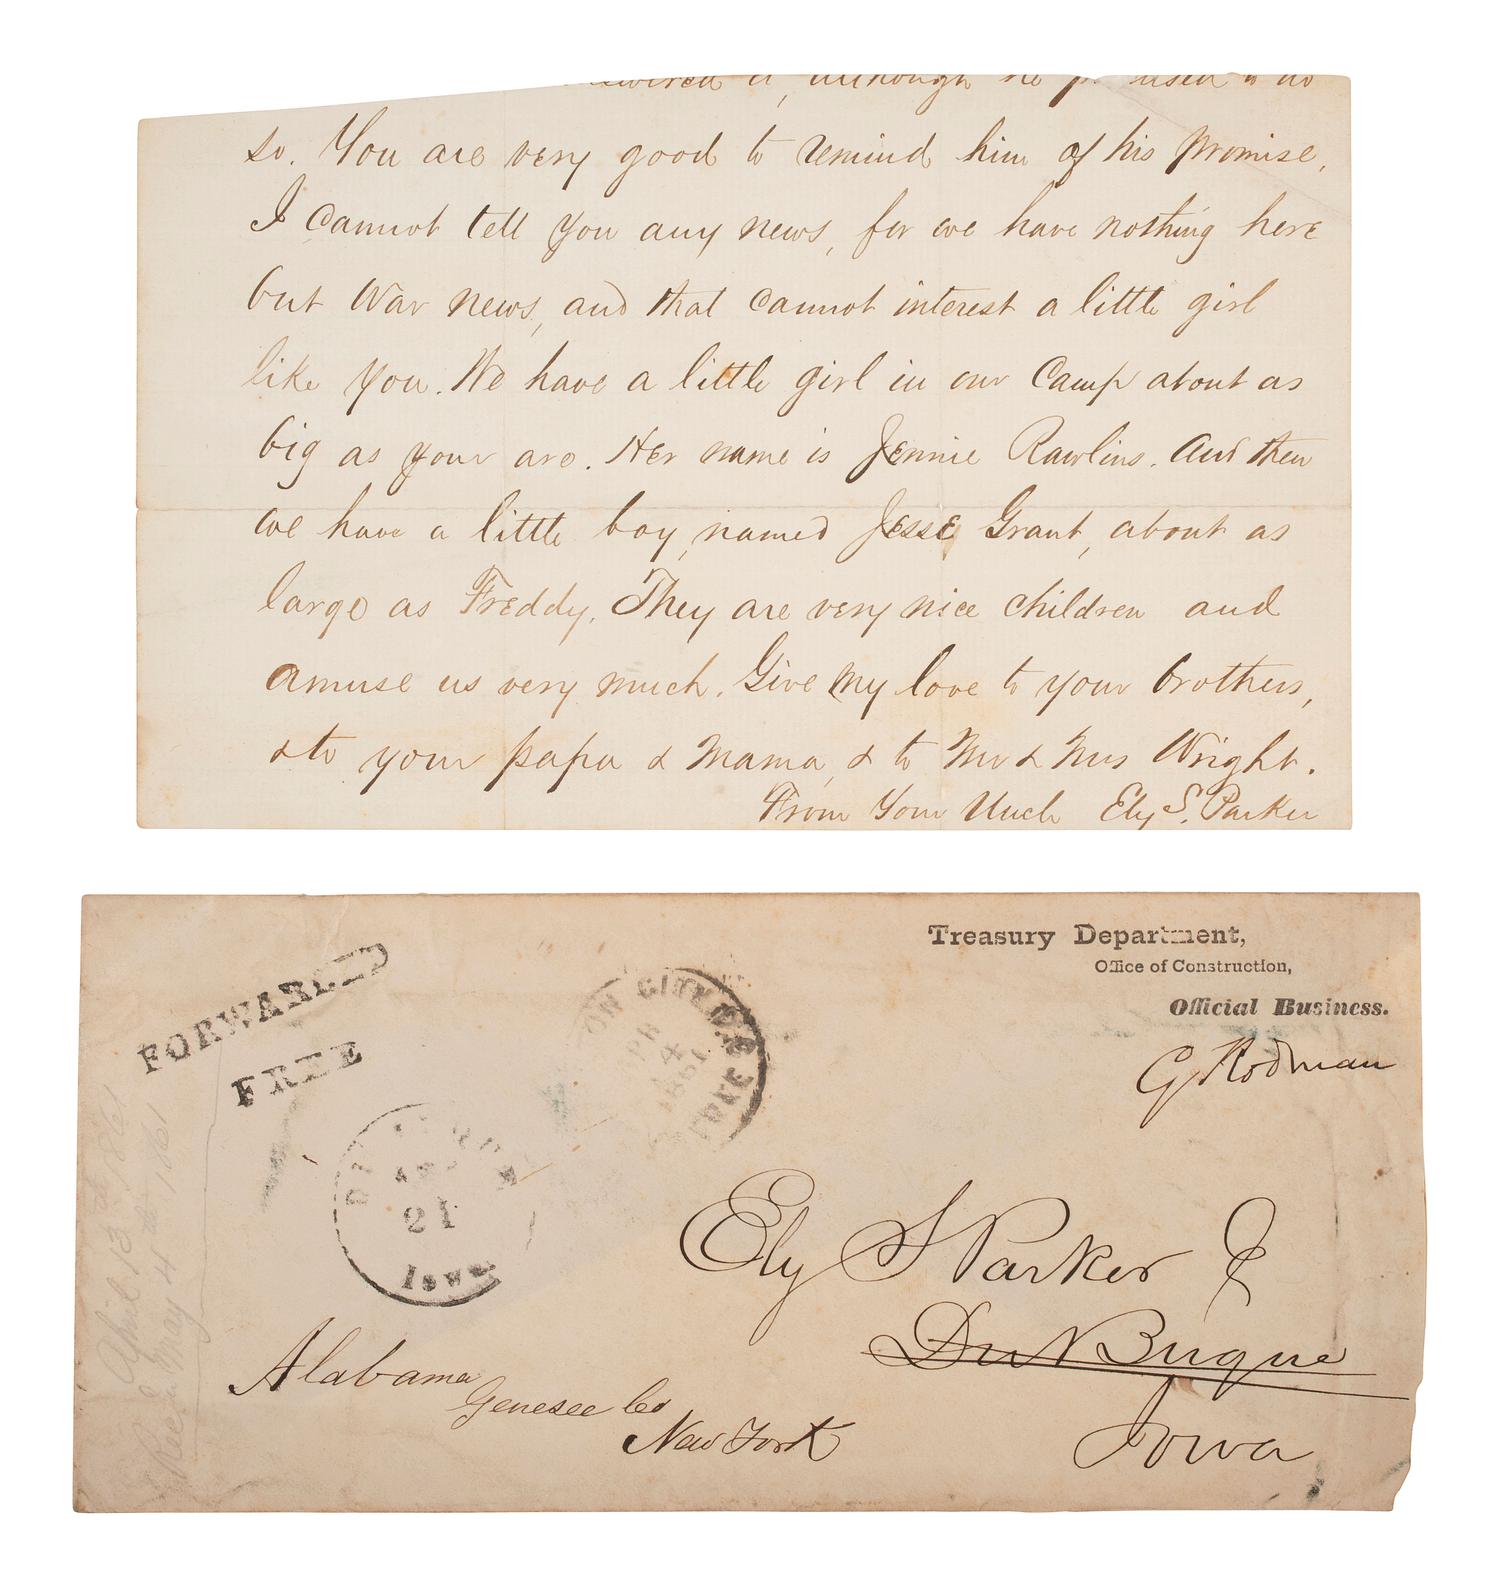 although he p used to do
so. You are very good to remind him of his promise,
I cannot tell you any news, for we have nothing here
but War news, and that cannot interest a little girl
like you. We have a little girl in our Camp about as
big as your are. Her name is Jennie Rawlins. And then
we have a little boy, named Jesse Grant, about as
large as Freddy. They are very nice children and
amuse us very much. Give my love to your brothers,
& to your papa & Mama, & to Mr & Mrs Wright.
From Your Uncle Ely S. Parker
Treasury Department,
Office of Construction,
Official Business.
G Rodman
FORWARDED
FREE
ON CITY
4
1861
FREE
21
Iowa
Ely S Parker
DuBuque
Iowa
Alabama
Genesee Co
New York
April 13th 1861
Recd May 4th 1861